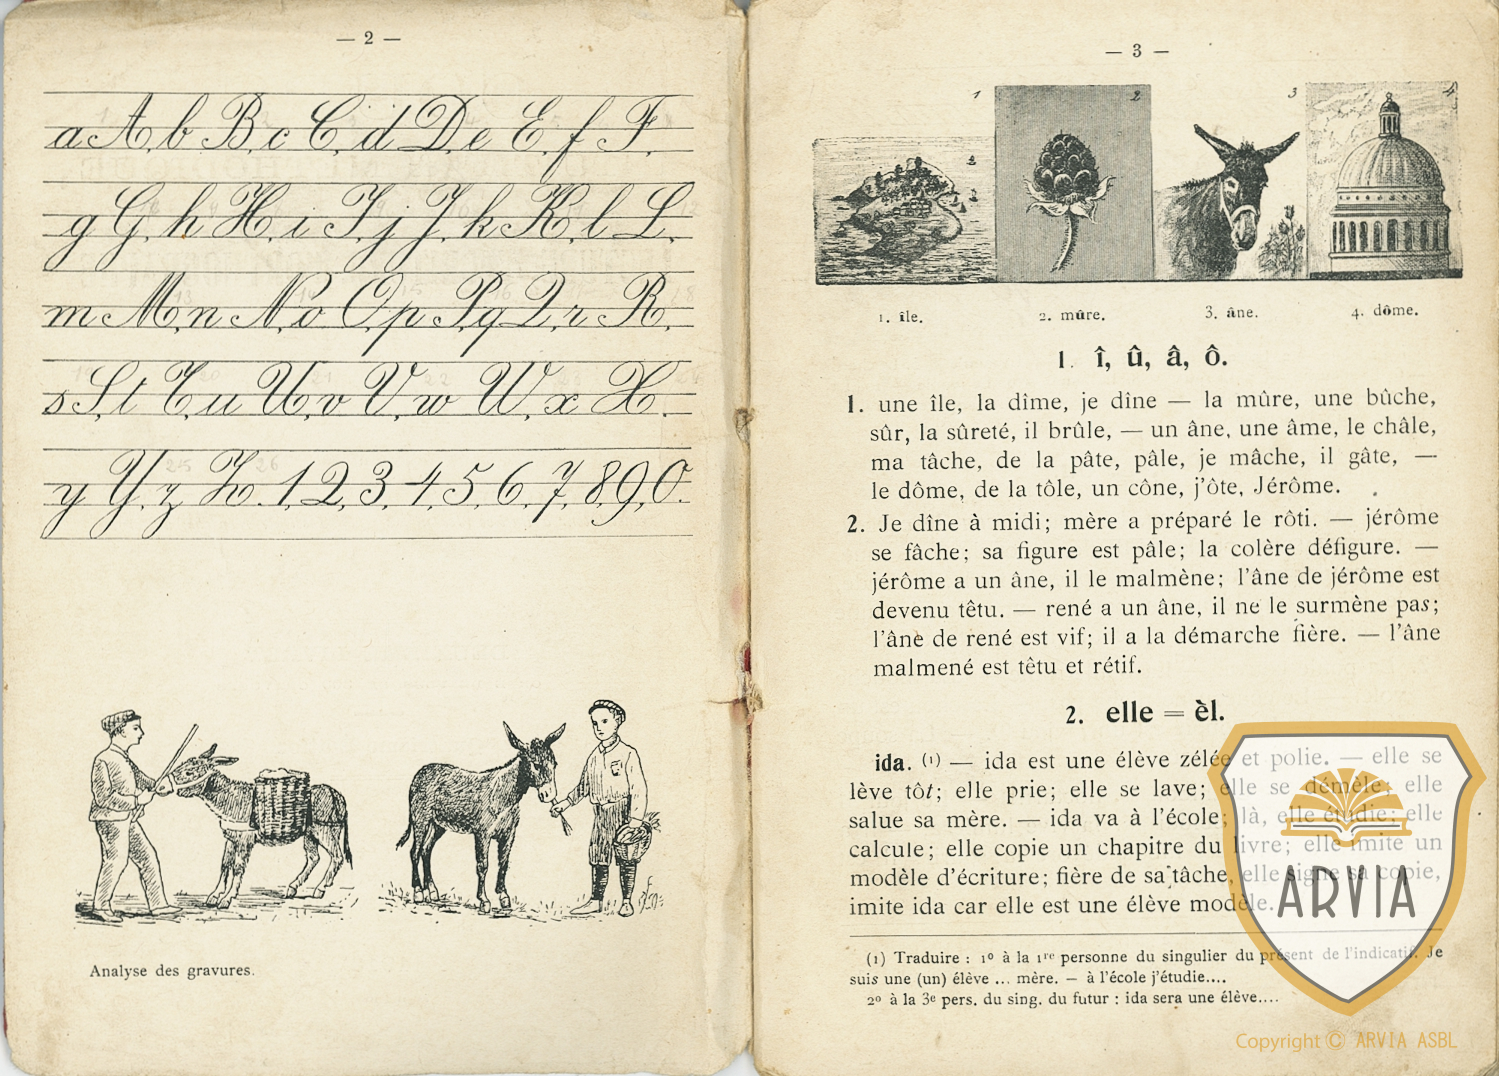 — 2 —
a A, b B, c C, d D, e E, f F,
g G, h H, i I, j J, k K, l L,
m M, n N, o O, p P, q Q, r R,
s S, t T, u U, v V, w W, x X,
y Y, z Z. 1, 2, 3, 4, 5, 6, 7, 8, 9, 0.
Analyse des gravures.
— 3 —
1 2 3 4
1. île. 2. mûre. 3. âne. 4. dôme.
1. î, û, â, ô.
1. une île, la dîme, je dîne — la mûre, une bûche,
sûr, la sûreté, il brûle, — un âne, une âme, le châle,
ma tâche, de la pâte, pâle, je mâche, il gâte, —
le dôme, de la tôle, un cône, j'ôte, Jérôme.
2. Je dîne à midi; mère a préparé le rôti. — jérôme
se fâche; sa figure est pâle; la colère défigure. —
jérôme a un âne, il le malmène; l'âne de jérôme est
devenu têtu. — rené a un âne, il ne le surmène pas;
l'âne de rené est vif; il a la démarche fière. — l'âne
malmené est têtu et rétif.
2. elle = èl.
ida. (1) — ida est une élève zélée et polie. — elle se
lève tôt; elle prie; elle se lave; elle se démêle; elle
salue sa mère. — ida va à l'école; là, elle étudie; elle
calcule; elle copie un chapitre du livre; elle imite un
modèle d'écriture; fière de sa tâche, elle signe sa copie,
imite ida car elle est une élève modèle.
(1) Traduire : 1º à la 1re personne du singulier du présent de l'indicatif. Je
suis une (un) élève ... mère. — à l'école j'étudie....
2º à la 3e pers. du sing. du futur : ida sera une élève....
ARVIA
Copyright © ARVIA ASBL